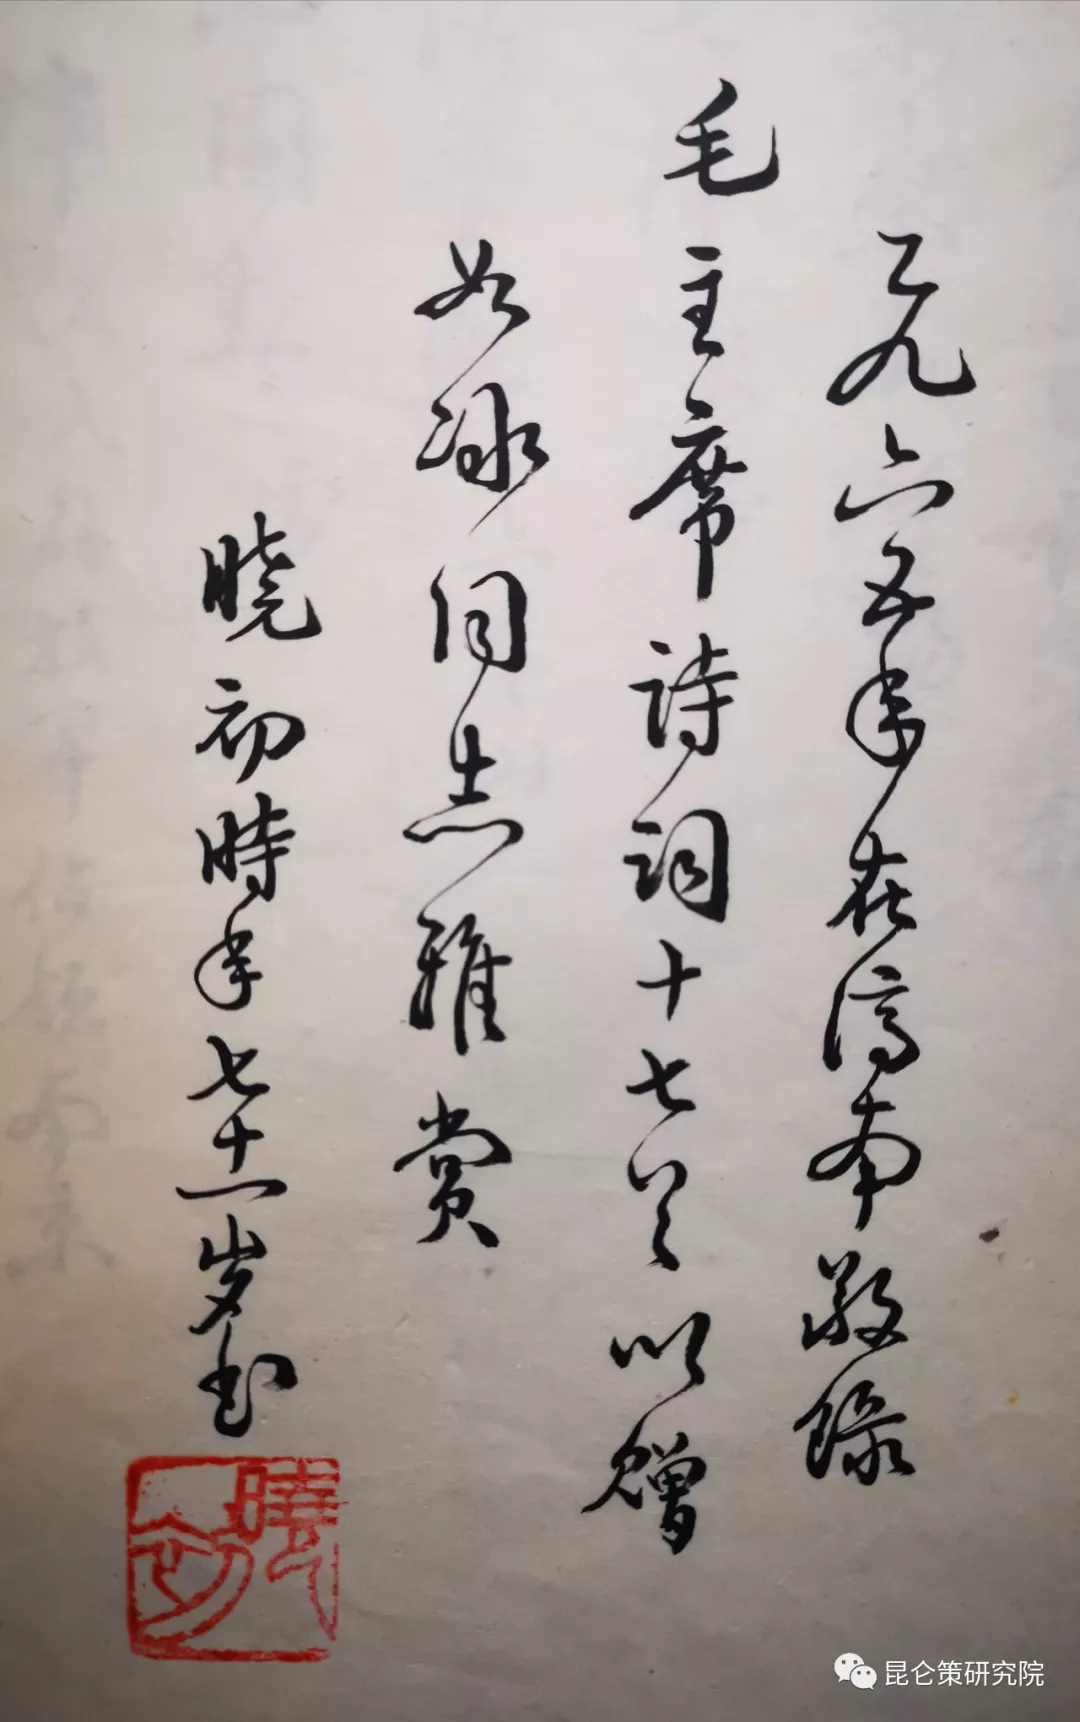 一九六五年在济南敬録
毛主席詩詞十七首以贈
如冰同志雅賞
晓初時年七十一岁书
曉初
昆仑策研究院